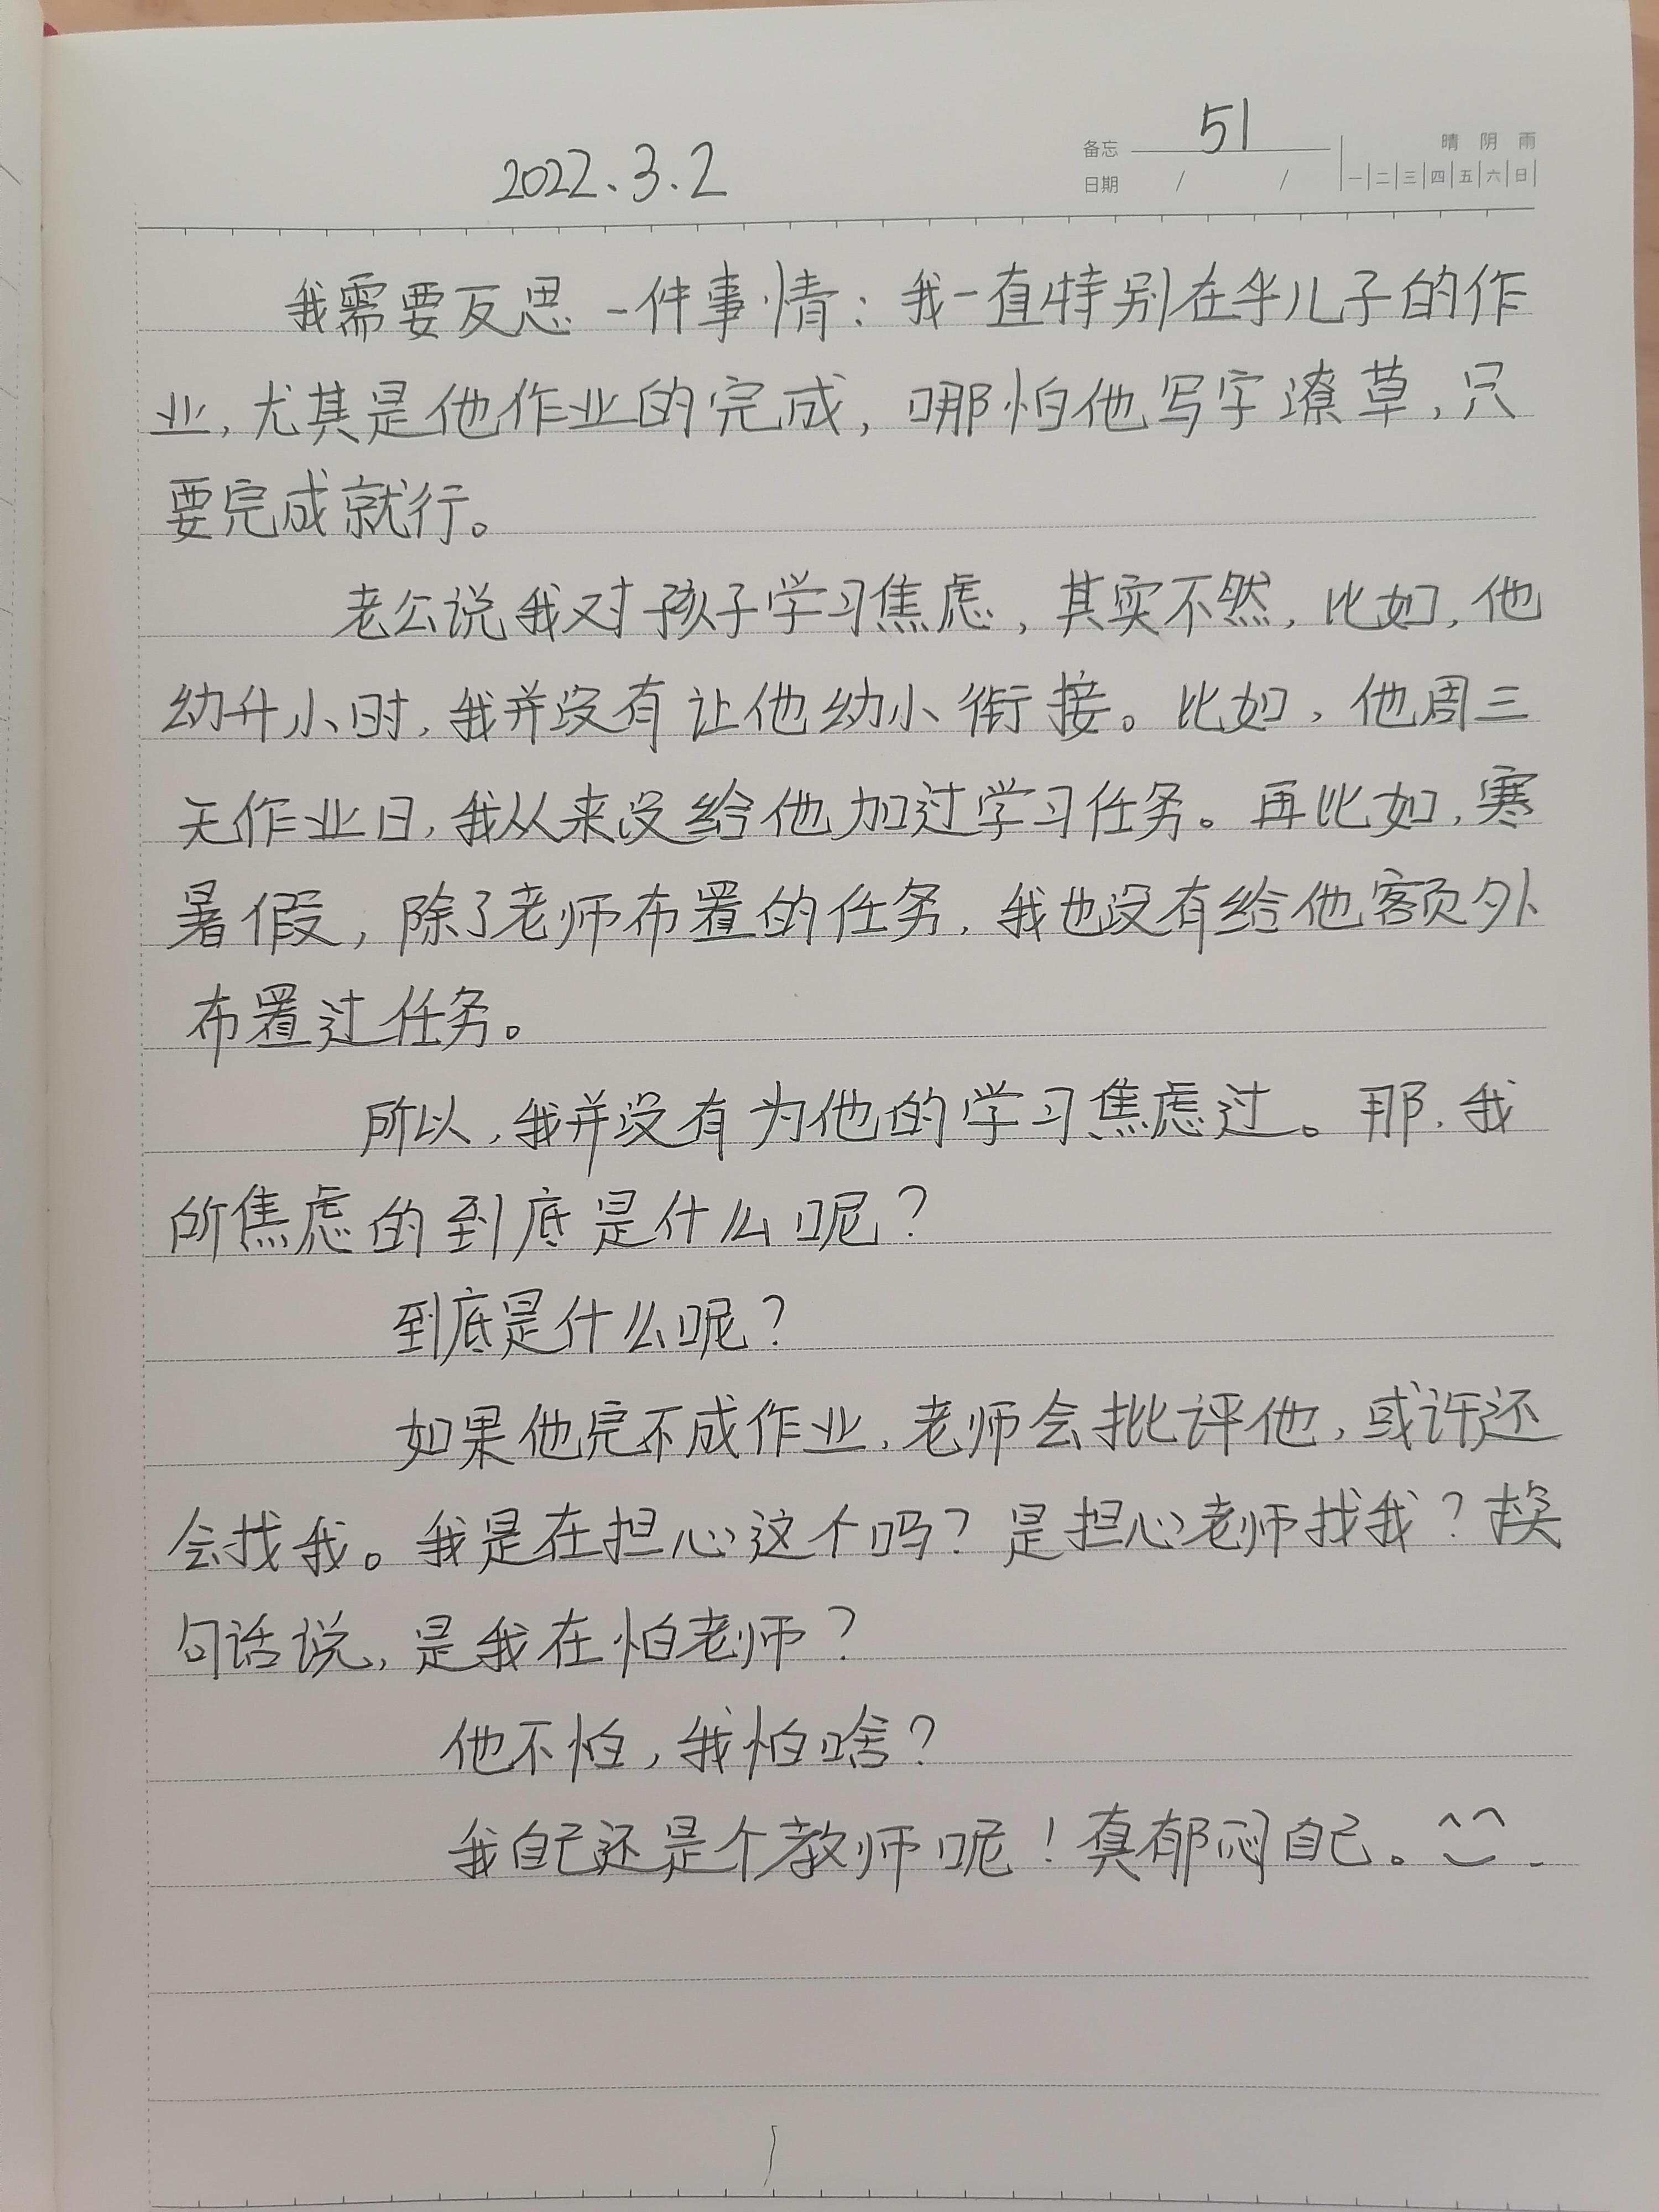 51
备忘
晴 阴 雨
2022.3.2
日期 / /
一 二 三 四 五 六 日
我需要反思一件事情：我一直特别在乎儿子的作
业，尤其是他作业的完成，哪怕他写字潦草，只
要完成就行。
老公说我对孩子学习焦虑，其实不然，比如，他
幼升小时，我并没有让他幼小衔接。比如，他周三
无作业日，我从来没给他加过学习任务。再比如，寒
暑假，除了老师布置的任务，我也没有给他额外
布置过任务。
所以，我并没有为他的学习焦虑过。那，我
所焦虑的到底是什么呢？
到底是什么呢？
如果他完不成作业，老师会批评他，或许还
会找我。我是在担心这个吗？是担心老师找我？换
句话说，是我在怕老师？
他不怕，我怕啥？
我自己还是个教师呢！真郁闷自己。